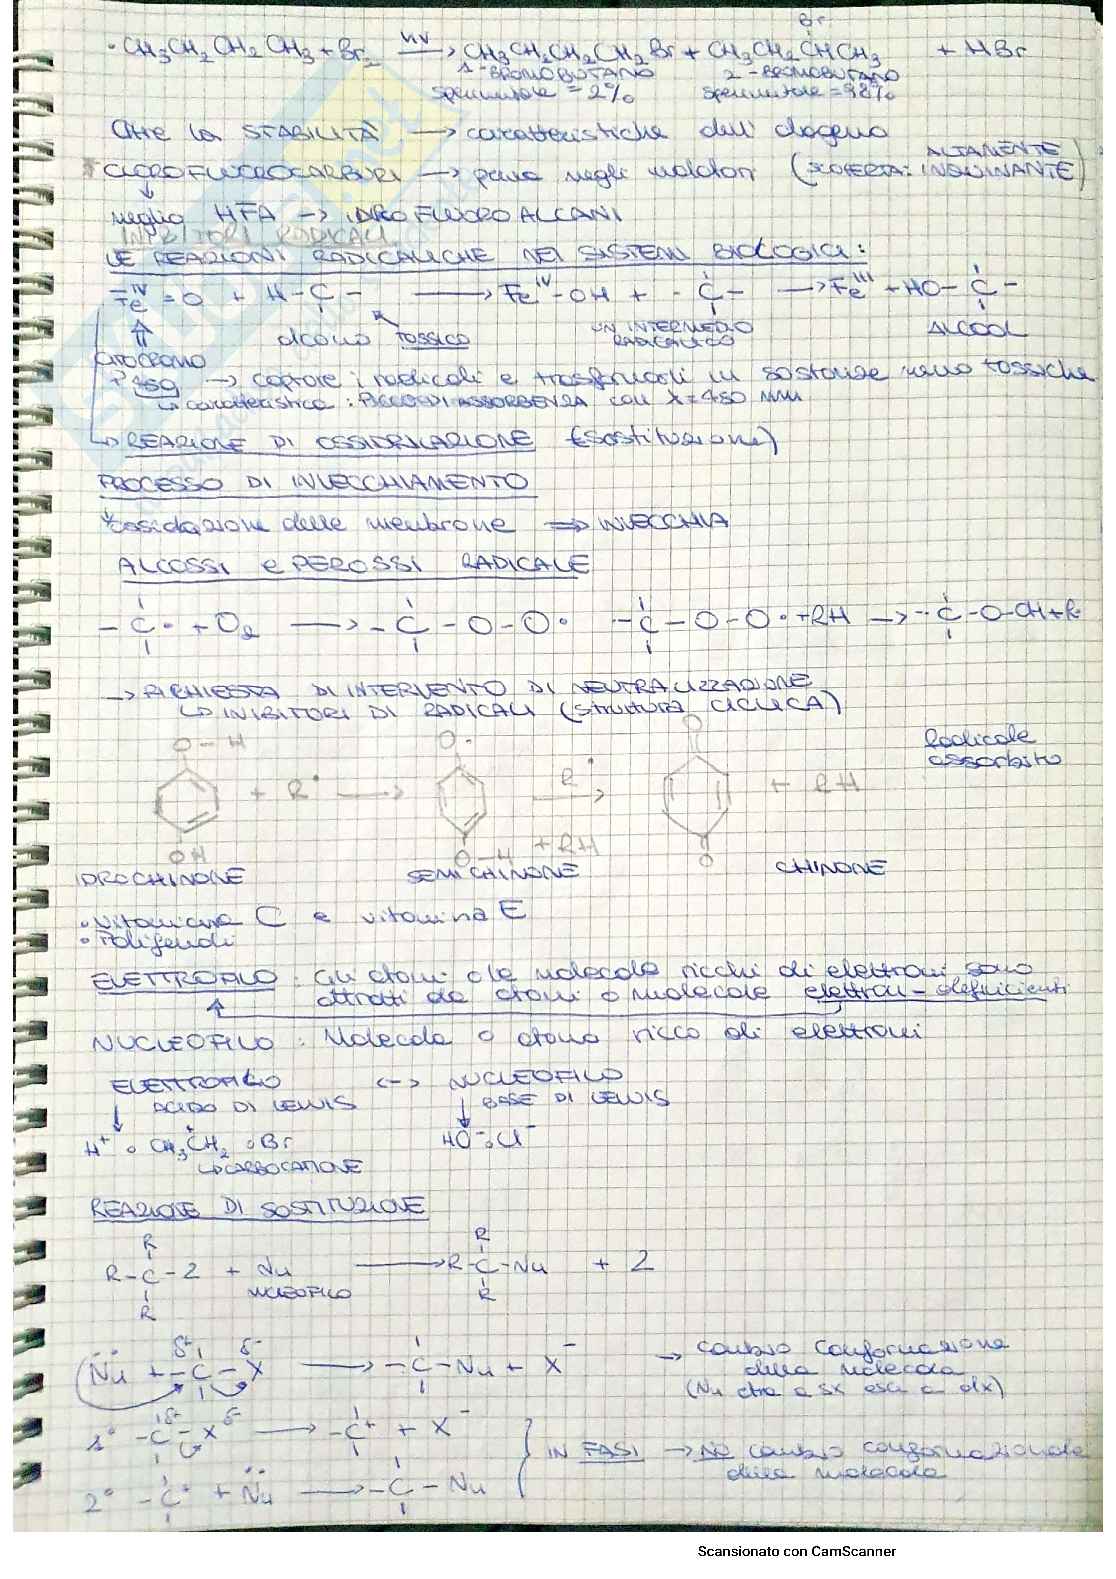 Br
• CH3CH2CH2CH3 + Br2 hν → CH3CH2CH2CH2Br + CH3CH2CHCH3 + HBr
1-BROMOBUTANO 2-BROMOBUTANO
sperimentale = 2% sperimentale = 98%
Oltre la STABILITÀ → caratteristiche dell'alogeno
* CLOROFLUOROCARBURI → prima negli (SCOPERTA: ALTAMENTE INQUINANTE)
meglio HFA → IDROFLUOROALCANI
INIBITORI RADICALI
LE REAZIONI RADICALICHE NEI SISTEMI BIOLOGICI:
Fe IV = O + H-C- → Fe IV -OH + -C- → Fe III + HO-C-
alcano tossico UN INTERMEDIO RADICALICO ALCOOL
CITOCROMO
P450 → captare i radicali e trasformarli in sostanze meno tossiche
↳ caratteristica: PICCO DI ASSORBENZA con λ=450 nm
↳ REAZIONE DI OSSIDRILAZIONE (sostituzione)
PROCESSO DI INVECCHIAMENTO
ossidazione delle membrane ⇒ INVECCHIA
ALCOSSI e PEROSSI RADICALE
-C• + O2 → -C-O-O• -C-O-O• + RH → -C-O-OH + R•
→ RICHIESTA DI INTERVENTO DI NEUTRALIZZAZIONE
↳ INIBITORI DI RADICALI (struttura CICLICA)
Radicale
assorbito
O-H O• O
+ R• → R• → + RH
OH O-H + RH O
IDROCHINONE SEMICHINONE CHINONE
• Vitamina C e vitamina E
• Polifenoli
ELETTROFILO: Gli atomi o le molecole ricchi di elettroni sono
attratti da atomi o molecole elettron-deficienti
NUCLEOFILO: Molecola o atomo ricco di elettroni
ELETTROFILO <-> NUCLEOFILO
ACIDO DI LEWIS BASE DI LEWIS
H+ o CH3CH2 o Br HO- o Cl-
↳ CARBOCATIONE
REAZIONE DI SOSTITUZIONE
R R
R-C-Z + Nu → R-C-Nu + Z
R NUCLEOFILO R
Nu + -C-X → -C-Nu + X- → cambio conformazione
δ+ δ- della molecola
(Nu entra a sx esce a dx)
1° -C-X → -C+ + X-
δ+ δ- IN FASI → No cambio conformazionale
della molecola
2° -C+ + Nu → -C-Nu
Scansionato con CamScanner